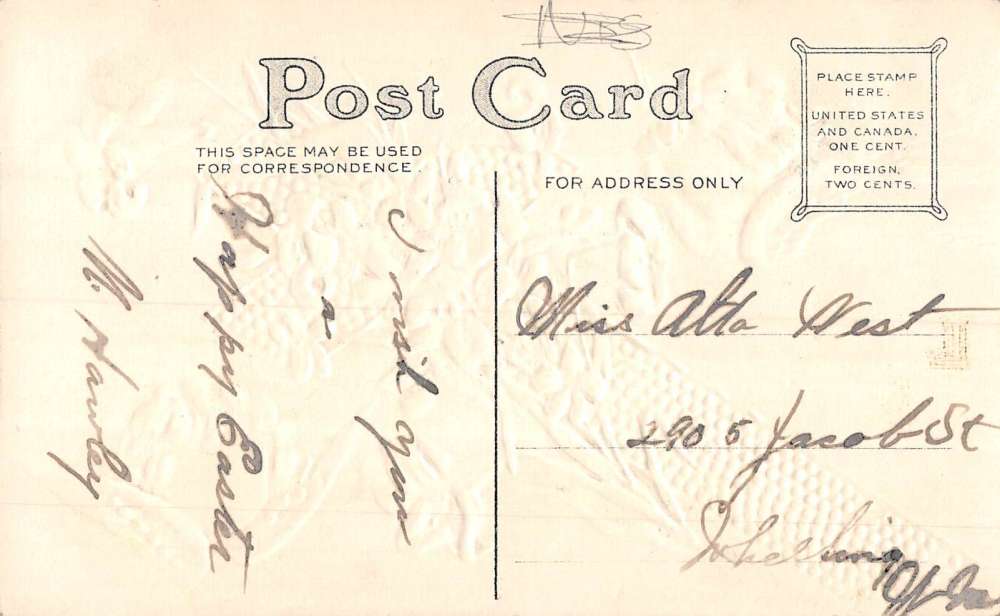 Post Card
THIS SPACE MAY BE USED
FOR CORRESPONDENCE.
I wish you
a
Happy Easter
M. Hawley
FOR ADDRESS ONLY
PLACE STAMP
HERE.
UNITED STATES
AND CANADA.
ONE CENT.
FOREIGN,
TWO CENTS.
Miss Alta West
2905 Jacob St
Wheeling W Va